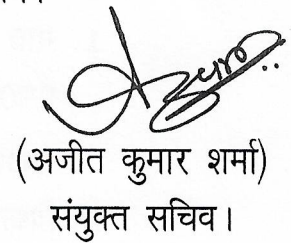 (अजीत कुमार शर्मा)
संयुक्त सचिव।